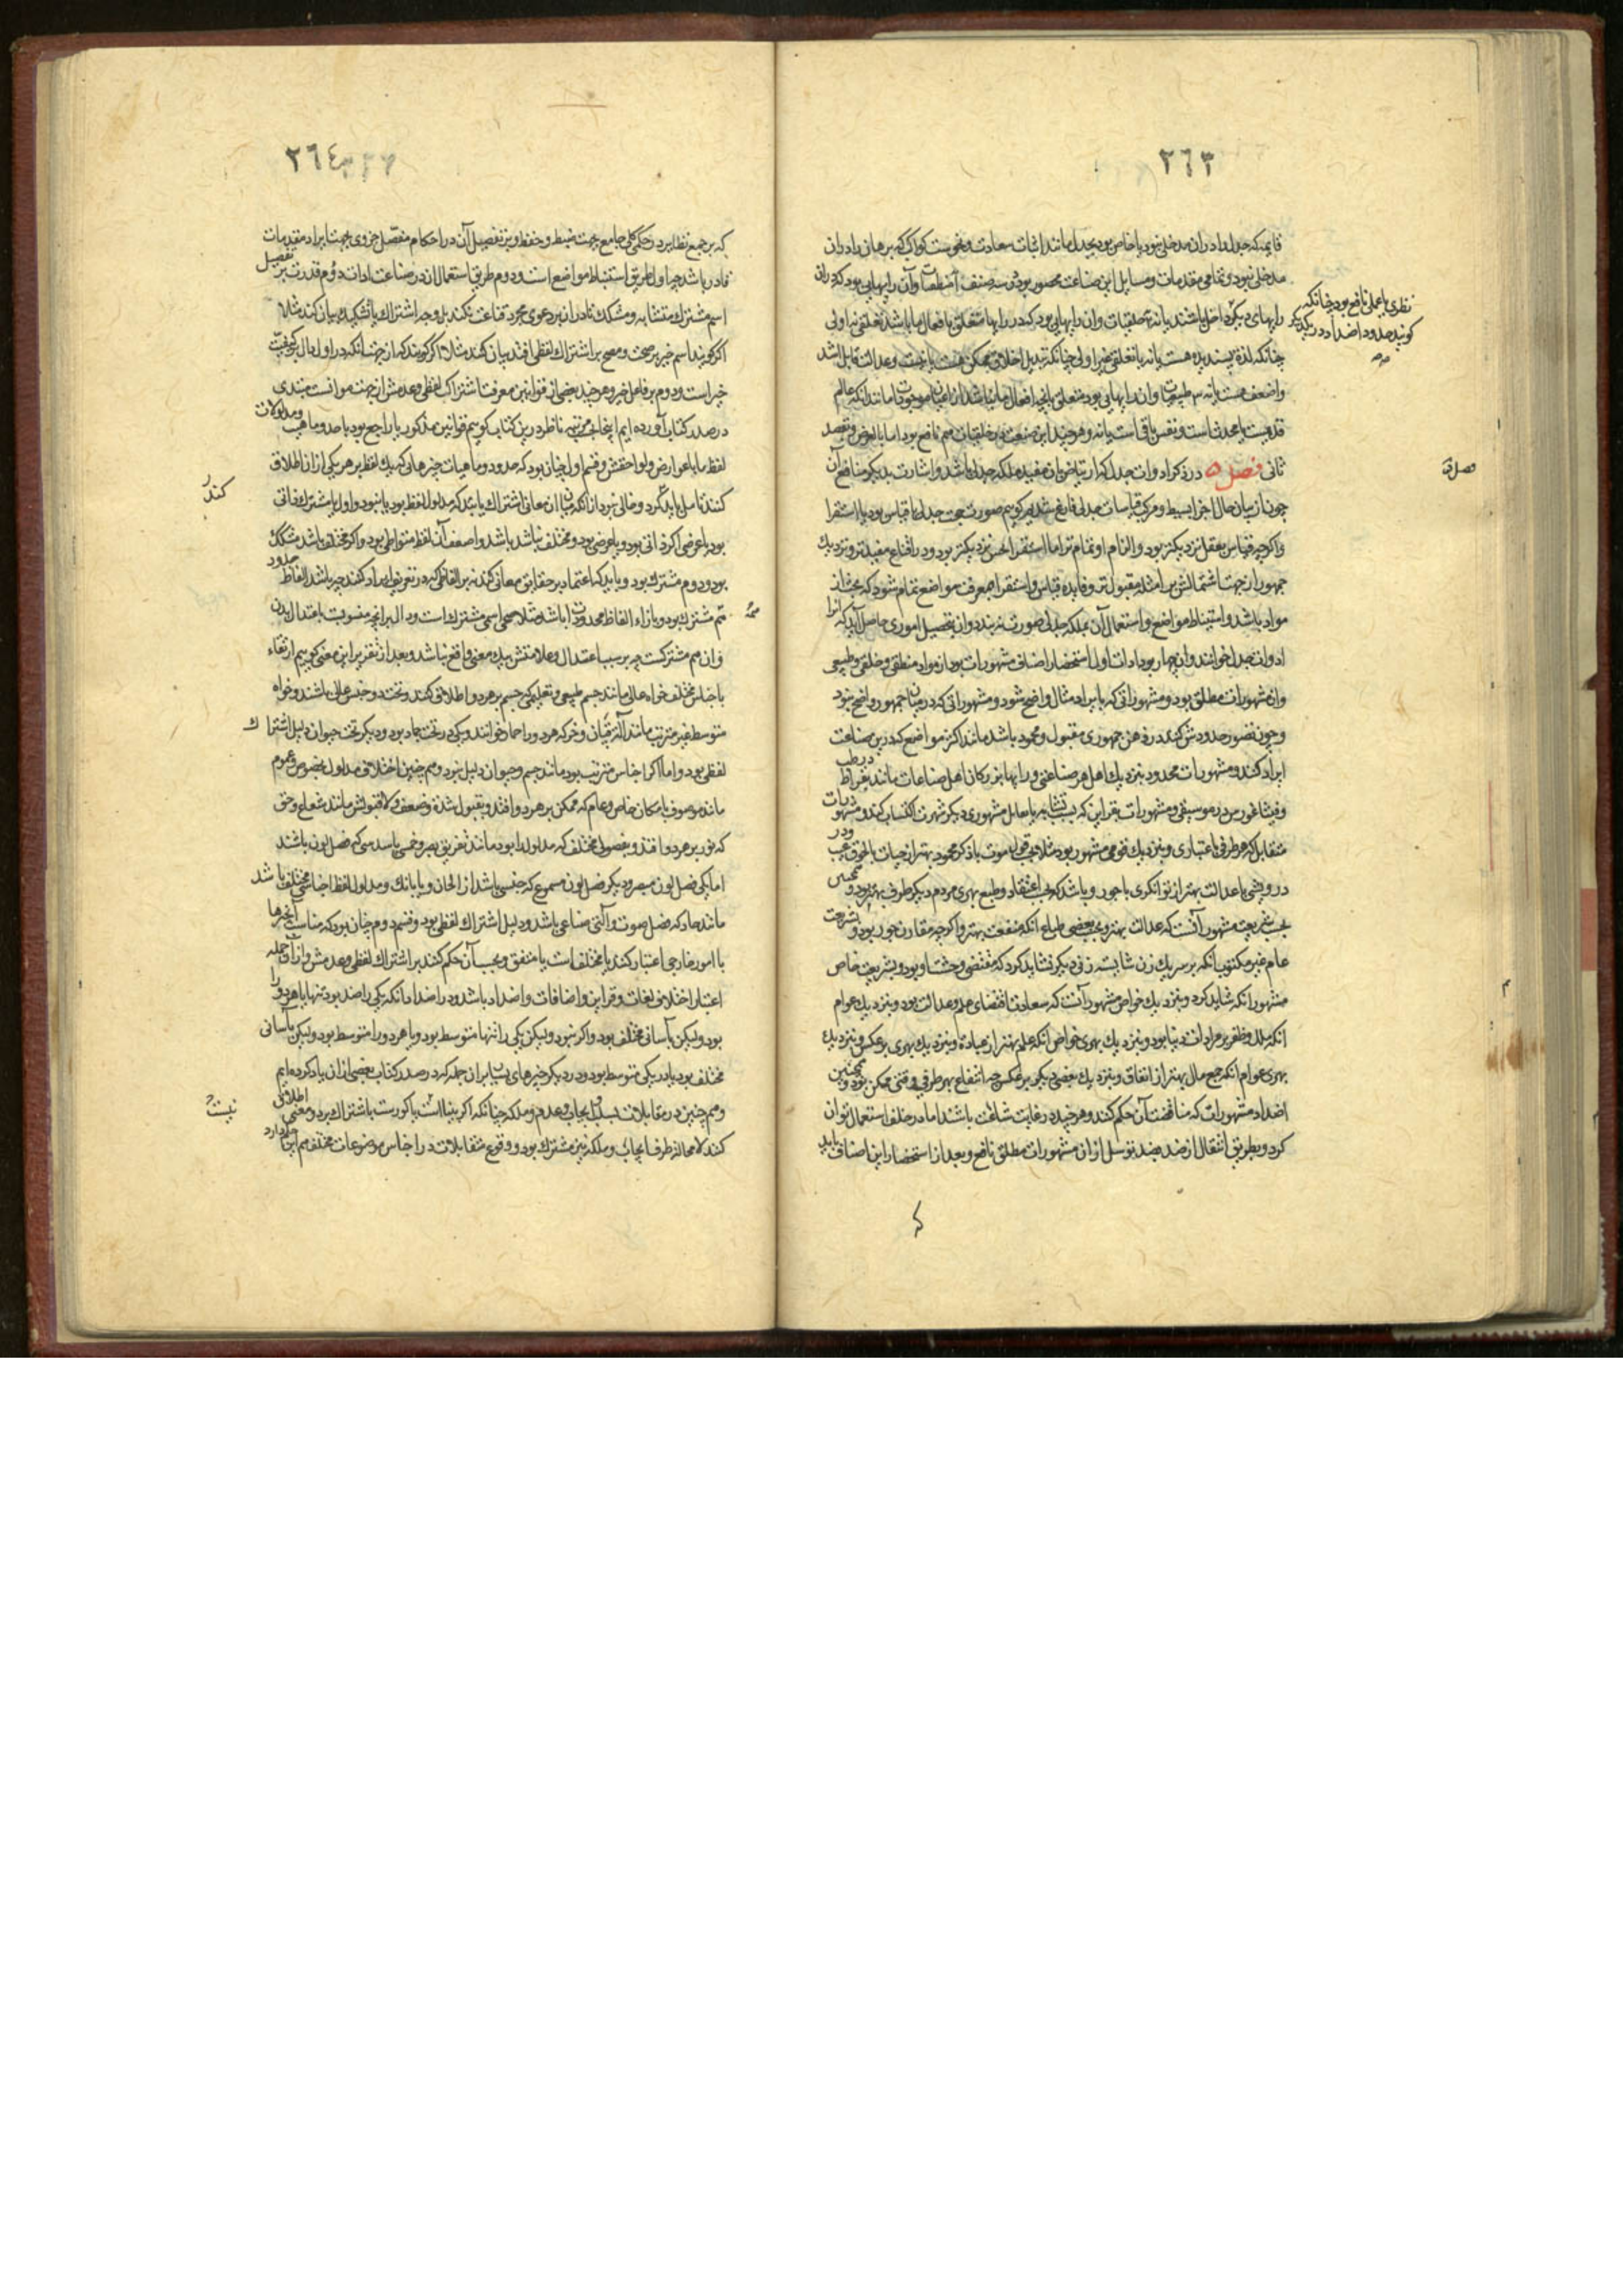 ٢٦٣
قایم که جدل را در ان مدخل نبود یا خاص بود بجدل مانند اثبات سعادت و نحوست کواکب که برهان را در ان
مدخلی نبود و تمامی مقدمات و مسایل این صناعت محصور بود در سه صنف ا منطقیات و آن رایهایی بود که در ان
نظری یا عملی نافع بود چنانکه
کویند حدود اضداد در یکدیگر
رایهای دیگر داخل باشند یا نه ب خلقیات و ان رایهایی بود که در رایها متعلق بافعال ما باشد تعلقی نه اولی
چنانکه لذة پسندیده هست یا نه یا تعلقی غیر اولی چنانکه تبدیل اخلاق ممکن هست یا نیست و عدالت قابل اشد
و اضعف هست یا نه ج طبیعیات و ان رایهایی بود متعلق بانچه افعال ما نباشد از اعیان موجودات مانند انکه عالم
قدیمست یا محدث است و نفس باقی است یا نه و هرچند این صنعت در خلقیات هم نافع بود اما بالعرض و بقصد
ثانی فصل ٥ در ذکر ادوات جدل که ارتیاض بان مفید ملکه جدلی باشد و اشارت بدیکر منافع آن
چون از بیان حال اجزا بسیط و مرکب قیاسات جدلی فارغ شدیم کوییم صورت حجت جدلی یا قیاس بود یا استقرا
و اکرچه قیاس بعقل نزدیکتر بود و الزام او تمام تر اما استقرا بحس نزدیکتر بود و در اقناع مفیدتر و نزدیک
جمهور از جهت اشتمالش بر امثله مقبول تر و فایده قیاس و استقرا بمعرفت مواضع تمام شود که بحث از
مواد باشد و استنباط مواضع و استعمال آن بملکه جدلی صورت نه بندد و ان بتحصیل اموری حاصل آید که انرا
ادوات جدل خوانند و ان چهار بود ادات اول استحضار اصناف مشهورات بود از مواد منطقی و خلقی و طبیعی
و ان مشهورات مطلق بود و مشهوراتی که بایراد مثال واضح شود و مشهوراتی که در میان جمهور واضح نبود
و چون تصور حدودش کنند در ذهن جمهوری مقبول و محمود باشد مانند اکثر مواضع که درین صناعت
ایراد کنند و مشهورات محدود بنزدیک اهل هر صناعتی و رایها بزرکان اهل صناعات مانند بقراط در طب
و فیثاغورس در موسیقی و مشهورات بقراین که بسبب تشابه یا تعامل مشهوری دیکر شهرت اکتساب کند و مشهورات
متقابل که هر طرفی باعتباری و بنزدیک قومی مشهور بود مثلا بحسب قول موت با ذکر محمود بهتر از حیات با خوف و در
درویشی با عدالت بهتر از توانکری با جور و باشد که بحسب اعتقاد و طبع بهری مردم دیکر طرف بهتر بود و همچنین
بحسب شریعت مشهور آنست که عدالت بهتر و بحسب بعضی طباع انکه منفعت بهتر و اکرچه مقارن جور بود و بشریعت
عام غیر مکتوب انکه بر سر یک زن شایسته زنی دیکر نشاید کرد که مقتضی وحشت او بود و بشریعت خاص
مشهور انکه شاید کرد و بنزدیک خواص مشهور آنست که سعادت اقتضای علم و عدالت بود و بنزدیک عوام
انکه ملک و ظفر بر مرادات دنیا بود و بنزدیک بهری خواص انکه علم بهتر از عبادة و بنزدیک بهری بر عکس و بنزدیک
بهری عوام انکه جمع مال بهتر از انفاق و بنزدیک بعضی دیکر بر عکس چه انتفاع بهر طرفی وقتی ممکن بود و همچنین
اضداد مشهورات که مناقضت آن حکم کنند و هرچند در غایت شناعت باشند اما در خلف استعمال توان
کرد و بطریق انتقال از ضد بضد توسل ازان بمشهورات مطلق نافع و بعد از استحضار این اصناف باید
که
٢٦٤
که بر جمیع نظایر در حکمی کلی جامع بجهت ضبط و حفظ و بر تفصیل آن در احکام مفصل جزوی بجهت ایراد مقدمات
قادر باشد چه اول طریق استنباط مواضع است و دوم طریق استعمال ان در صناعت ادات دوم قدرت بر تفصیل
اسم مشترک و متشابه و مشکک تا در ان بر دعوی مجرد قناعت نکند بل وجه اشتراک یا تشکیک بیان کند مثلا
اکر کویند اسم خیر بر صحت و مصح باشتراک لفظی افتد بیان کنند مثلا اکر کویند که از جهت انکه در اول دال بر کیفیت
خیر است و دوم بر فاعل خیر و هرچند بعضی از قوانین معرفت اشتراک لفظی و عدمش از جهت موانست مبتدی
در صدر کتاب آورده ایم اینجا بجهت تنبیه ناظر درین کتاب کوییم قوانین مذکور یا راجع بود با حد و ماهیت و مدلولات
لفظ ما یا عوارض و لواحقش و قسم اول چنان بود که حدود و ماهیات چیزهائی که یک لفظ بر هر یکی ازان اطلاق
کنند تامل باید کرد و خالی نبود از انکه میان ان معانی اشتراک یابند که مدلول لفظ بود یا نبود و اول یا مشترک ذاتی
بود یا عرضی اکر ذاتی بود و یا عرضی بود و مختلف نباشد باشد و اضعف آن لفظ متواطی بود و اکر مختلف باشد مشکک
بود و دوم مشترک بود و باید که اعتماد بر حقایق معانی کنند نه بر الفاظی که در تعریف ایراد کنند چه باشد الفاظ حدود
هم مشترک بود و بازاء الفاظ محدودات باشد مثلا صحی اسمی مشترک است و دال بر انچه منسوبست باعتدال بدن
و ان هم مشترکست چه بر سبب اعتدال و علامتش بیک معنی واقع نباشد و بعد از تقریر این معنی کوییم ارتقاء
باجناس مختلف خواه عالی مانند جسم طبیعی و تعلیمی که جسم بر هر دو اطلاق کنند و تحت دو جنس عالی باشند و خواه
متوسط غیر مترتب مانند آلة رقیان و خر که هر دو را حمار خوانند و یکی در تحت جماد بود و دیکر تحت حیوان دلیل اشتراک
لفظی بود و اما اکر اجناس مترتب بود مانند جسم و حیوان دلیل نبود و هم چنین اختلاف مدلول بخصوص و عموم
مانند موصوف بامکان خاص و عام که ممکن بر هر دو افتد و بقبول شدة و ضعف و لا قبولش مانند شعاع و حق
که نور بر هر دو افتد و بفصولی مختلف که مدلول را بود مانند تفریق بصر و خمسی یا سدسی که فصل لون باشند
اما یکی فصل لون مبصر و دیکر فصل لون مسموع که جنسی باشد از الحان و یا بانک و مدلول لفظ اجناسی مختلف باشد
مانند حاد که فصل صوت و آلتی صناعی باشد و دلیل اشتراک لفظی بود و قسم دوم چنان بود که مناسبت چیزها
با امور خارجی اعتبار کنند یا مختلف است یا متفق و بحسب آن حکم کنند بر اشتراک لفظی و عدمش و ازان جمله
اعتبار اختلاف لغات و قراین و اضافات و اضداد باشد و در اضداد مانکه یکی را ضد بود تنها یا هر دو را
بود ولیکن باسانی مختلف بود و اکر نبود ولیکن یکی را تنها متوسط بود و یا هر دو را متوسط بود ولیکن باسانی
مختلف بود یا در یکی متوسط بود و در دیکر چیزهای بسیار ازان جمله که در صدر کتاب بعضی ازان یاد کرده ایم
و هم چنین در مقابلات بسلب و ایجاب و عدم و ملکه چنانکه اکر بینا است یا کور بست باشتراک بر دو معنی اطلاق
کنند لا محاله طرف ایجاب و ملکه نیز مشترک بود و وقوع متقابلات در اجناس موضوعات مختلف هم این حکم دارد
نیست